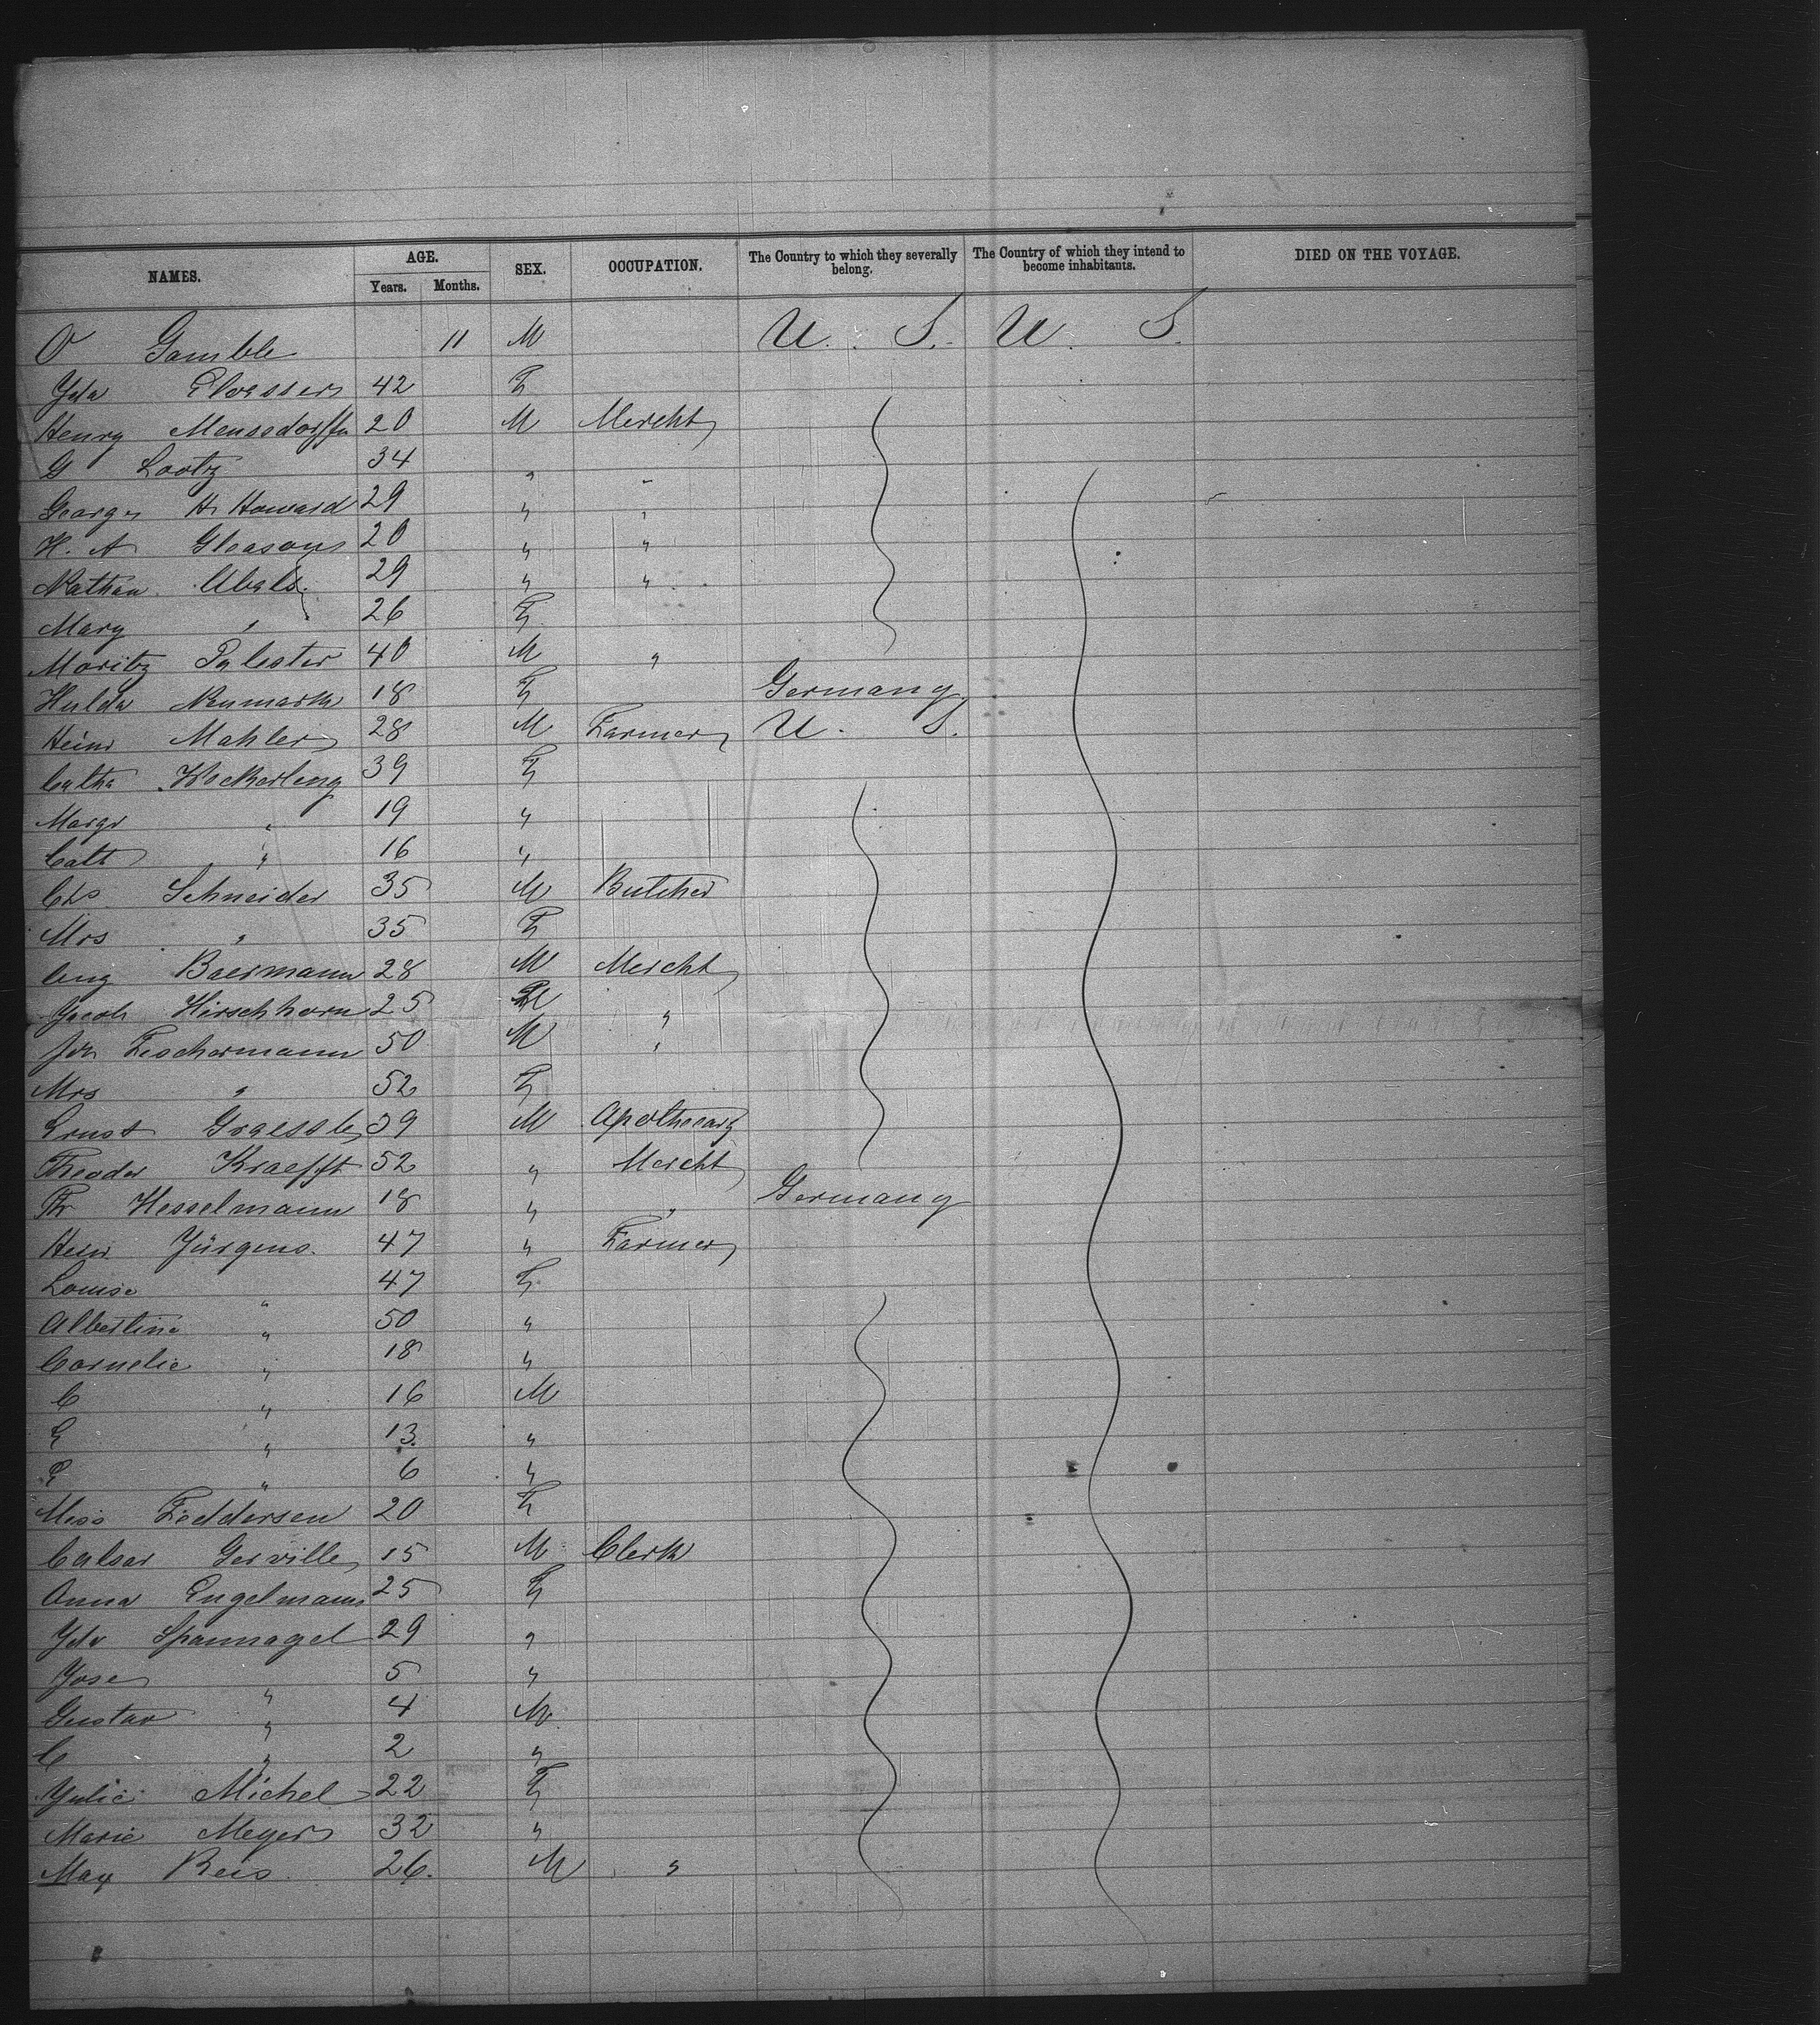 NAMES. AGE. Years. Months. SEX. OCCUPATION. The Country to which they severally belong. The Country of which they intend to become inhabitants. DIED ON THE VOYAGE.
O Gamble 11 M U. S. U. S.
Yda 42 F
Henry Mensedorffn 20 M Mercht
G Lootz 34 " "
George H. Howard 29 " "
H. A Gleason 20 " "
Nathan 29 " "
Mary " 26 F
Moritz Palester 40 M "
Hulda Neumark 18 F Germany
Heinr Mahler 28 M Farmer U. S.
Catha Wockerling 39 F
Margr " 19 "
Cath " 16 "
Chs Schneider 35 M Butcher
Mrs " 35 F
Aug Baermann 28 M Mercht
Jacob Hirschhorn 25 M "
Joh Fischermann 50 M "
Mrs " 52 F
Ernst Graessle 39 M Apothecary
Theodor Kraefft 52 " Mercht
Fr Hesselmann 18 " " Germany
Heinr Jürgens. 47 " Farmer
Louise " 47 F
Albertine " 50 "
Cornelie " 18 "
C " 16 M
E " 13. "
E " 6 "
Miss Feddersen 20 F
Gerville 15 M Clerk
Anna Engelmann 25 F
Yda Spannagel 29 "
Jose " 5 "
Gustav " 4 M
C " 2 "
Julie Michel 22 F
Marie Meyer 32 "
Max Reis. 26. M "